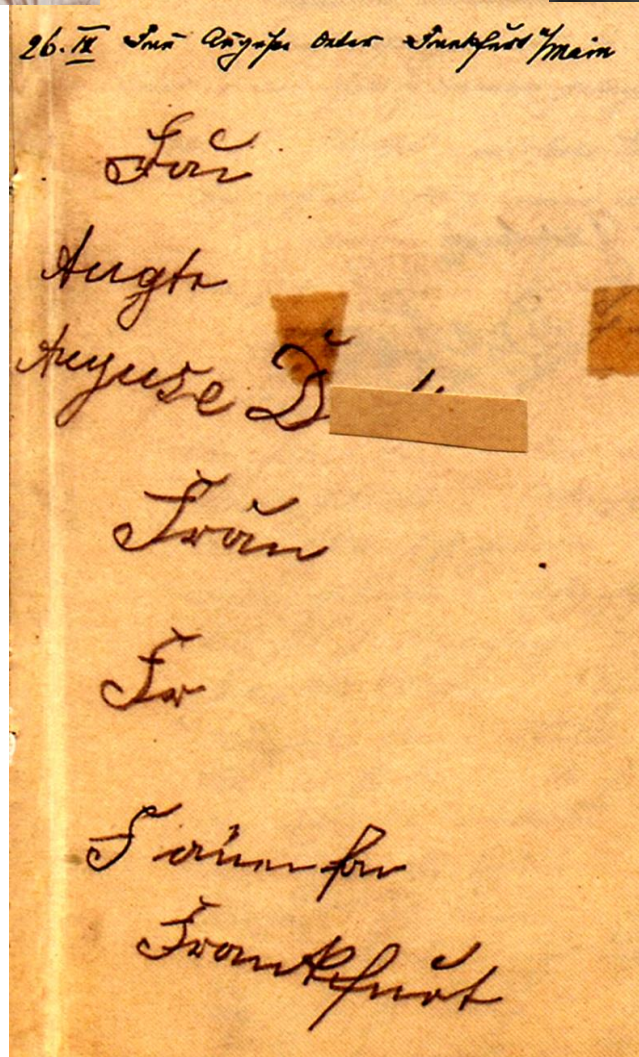 26. IX Frau Auguste Deter Frankfurt a/Main
Frau
Augte
Auguse D
Fraun
Fr
Frankfurt